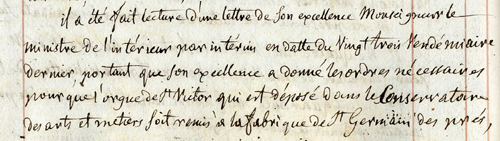 il a été fait lecture d'une lettre de son excellence Monseigneur le
ministre de l'intérieur par intérim en datte du vingt trois Vendémiaire
dernier portant que son excellence a donné les ordres nécessaires
pour que l'orgue de St Victor qui est déposé dans le Conservatoire
des arts et métiers soit remis à la fabrique de St Germain des prés,